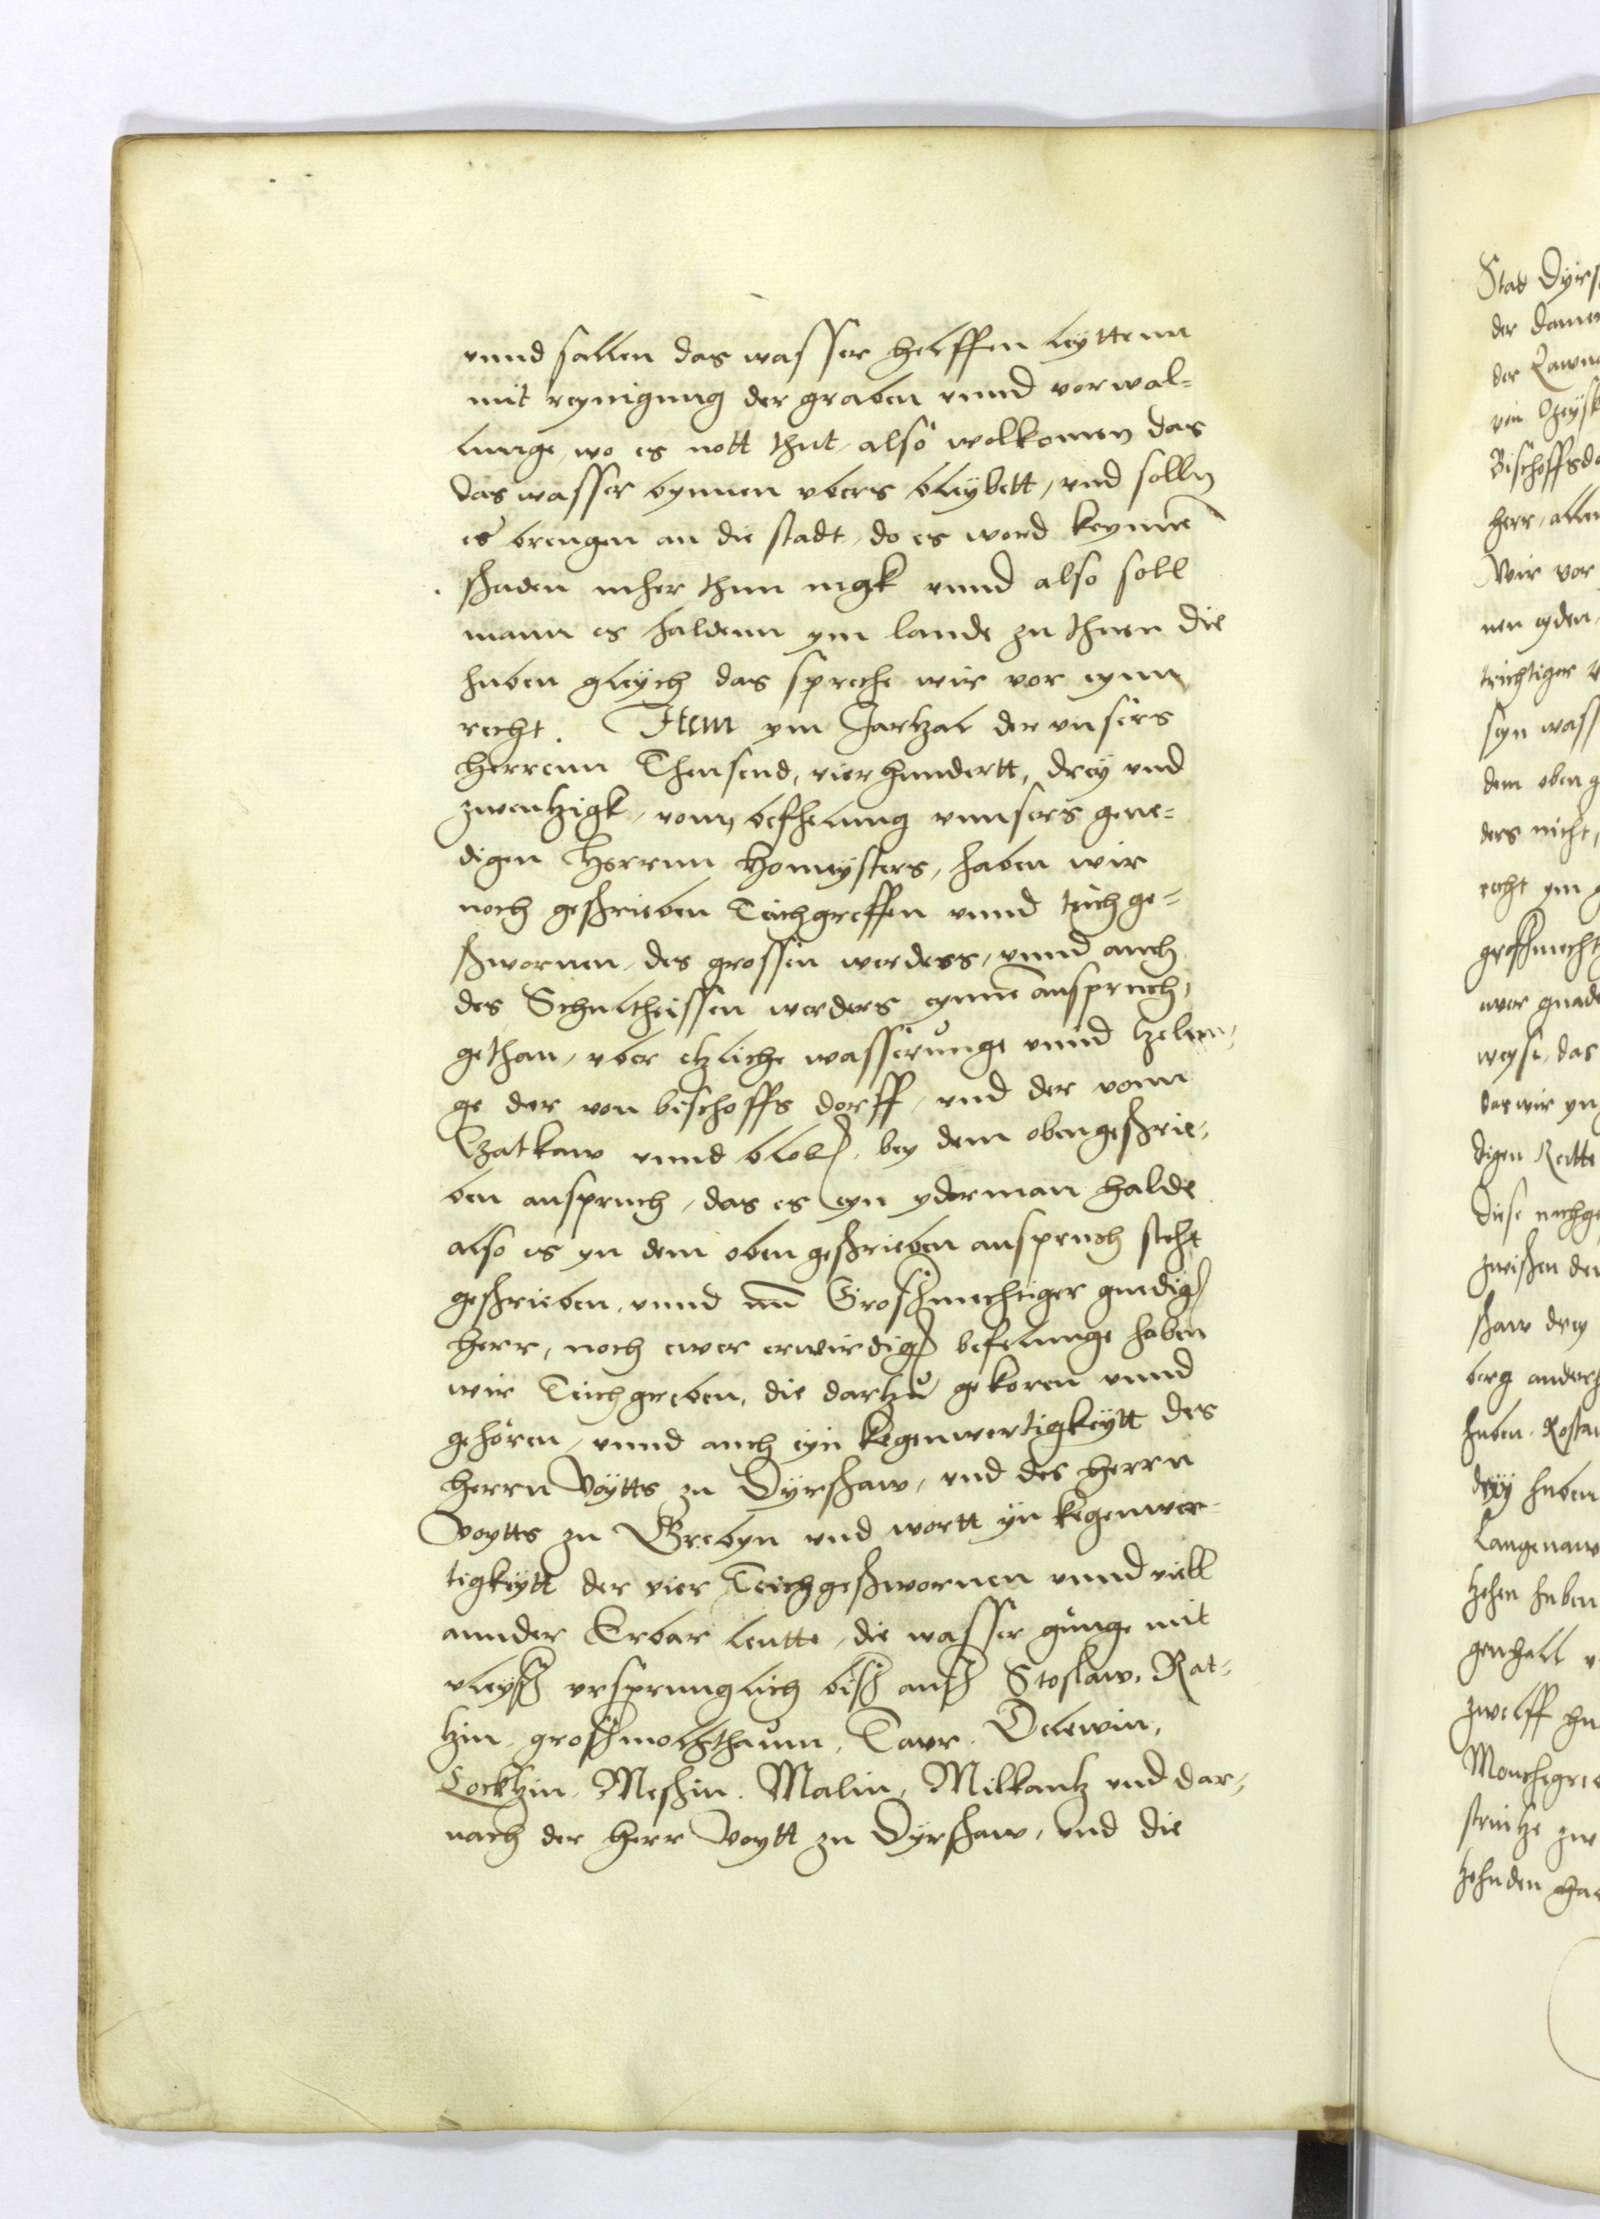 vnnd sollen das wasser helffen leyttenn
mit reynigung der graben vnnd vorwal-
lunge, wo es nott thut, also wolkomen das
das wasser bynnen vbers bleybett, vnd solln
es brengen an die stadt, do es word keynne
schaden meher thun mgk vnnd also soll
mann es haldenn ym lande zu thuen die
huben gleych das spreche wir vor eynn
recht. Item ym Jartzal der vnsers
Herrenn Thusend, vierhundertt, drey vnd
zwentzigk, vonn befhelung vnnsers gene-
digen Herrnn Homeysters, haben wir
noch geschrieben Teichgreffen vnnd teichge-
schwornen, des grossen werders, vnnd auch
des Schultheissen werders eynne anspruch,
gethan, vber etzliche wasserunge vnnd
ge der von bischoffs dorff, vnd der vonn
Czatkaw vnnd bey dem obengeschrie-
ben anspruch, das es eyn yderman halde
also es yn dem oben geschrieben anspruch steht
geschrieben, vnnd nun Groschmechtiger gnedig
herr, noch ewer erwirdig befelunge haben
wir Teichgreben, die dartzu gekoren vnnd
gehoren, vnnd auch eyn kegenwertigkeytt des
herrn Voytts zu Dyrschaw, vnd des herrn
Voytts zu Grebyn vnd wortt yn kegenwer-
tigkeytt der vier Teichgeschwornen vnnd viell
annder Erbar leutte, die wasser gunge mit
vleysch vrsprunglich bisch ausch Stoslaw, Rat-
tzin, groschmolsthaunn, Taur. Delewin,
Locktzin, Meschin. Malin, Milbantz vnd dar-
nach der herr Voytt zu Dyrschaw, vnd die
Stad Dyrs
der
der
von
Bischoffsdo
herr, allen
Wir vor
nen eyden,
trichtiger
seyn wass
dem oben g
ders nicht,
recht ym
groschmecht
ewer gnade
weyse, das
das wir yn
digen Reitte
diese nochge
zwischen den
schaw drey
berg anders
huben. Rosta
drey huben
Langenaw
tzehen huben
genhall
zwelff hu
Monchegre
zw